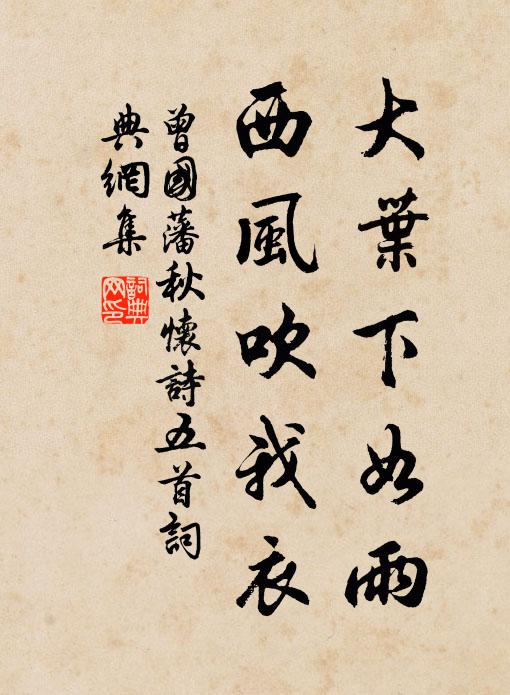 大葉下如雨
西風吹我衣
曾國藩秋懷詩五首詞
典網集
詞典
网印